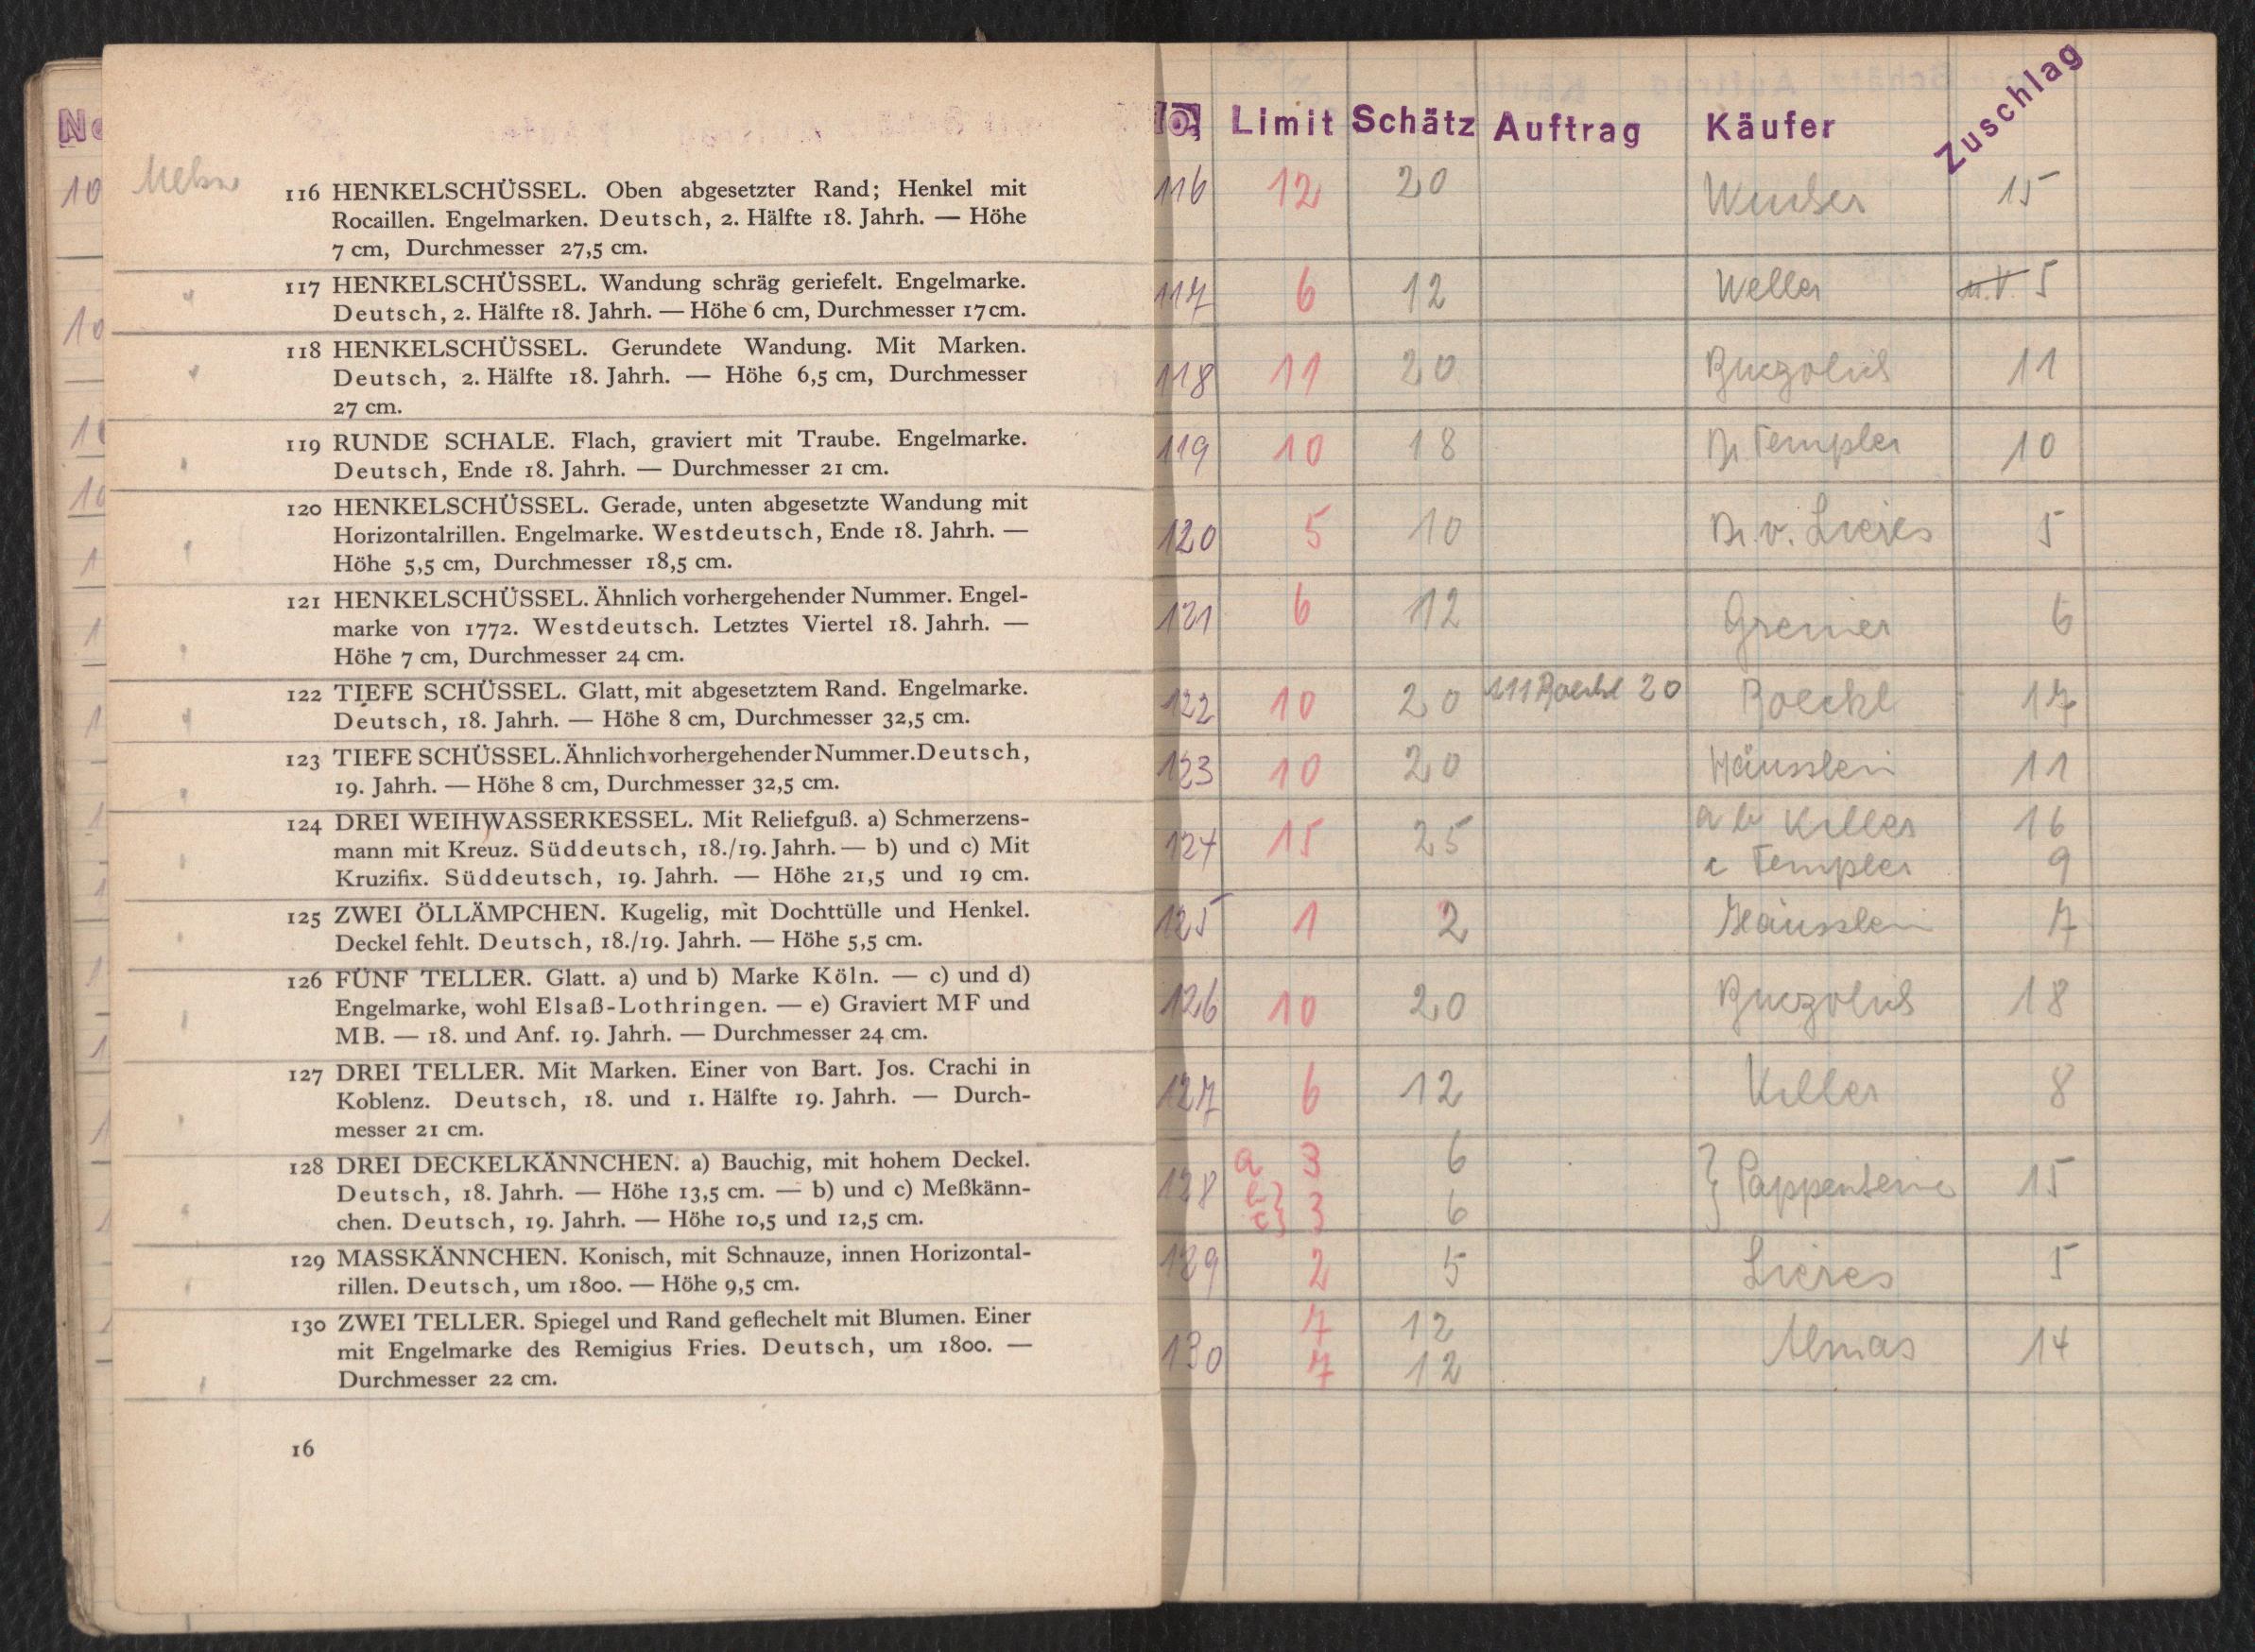 No
10
10
10
116 HENKELSCHÜSSEL. Oben abgesetzter Rand; Henkel mit
Rocaillen. Engelmarken. Deutsch, 2. Hälfte 18. Jahrh. — Höhe
7 cm, Durchmesser 27,5 cm.
117 HENKELSCHÜSSEL. Wandung schräg geriefelt. Engelmarke.
Deutsch, 2. Hälfte 18. Jahrh. — Höhe 6 cm, Durchmesser 17 cm.
118 HENKELSCHÜSSEL. Gerundete Wandung. Mit Marken.
Deutsch, 2. Hälfte 18. Jahrh. — Höhe 6,5 cm, Durchmesser
27 cm.
119 RUNDE SCHALE. Flach, graviert mit Traube. Engelmarke.
Deutsch, Ende 18. Jahrh. — Durchmesser 21 cm.
120 HENKELSCHÜSSEL. Gerade, unten abgesetzte Wandung mit
Horizontalrillen. Engelmarke. Westdeutsch, Ende 18. Jahrh. —
Höhe 5,5 cm, Durchmesser 18,5 cm.
121 HENKELSCHÜSSEL. Ähnlich vorhergehender Nummer. Engel-
marke von 1772. Westdeutsch. Letztes Viertel 18. Jahrh. —
Höhe 7 cm, Durchmesser 24 cm.
122 TIEFE SCHÜSSEL. Glatt, mit abgesetztem Rand. Engelmarke.
Deutsch, 18. Jahrh. — Höhe 8 cm, Durchmesser 32,5 cm.
123 TIEFE SCHÜSSEL. Ähnlich vorhergehender Nummer. Deutsch,
19. Jahrh. — Höhe 8 cm, Durchmesser 32,5 cm.
124 DREI WEIHWASSERKESSEL. Mit Reliefguß. a) Schmerzens-
mann mit Kreuz. Süddeutsch, 18./19. Jahrh. — b) und c) Mit
Kruzifix. Süddeutsch, 19. Jahrh. — Höhe 21,5 und 19 cm.
125 ZWEI ÖLLÄMPCHEN. Kugelig, mit Dochttülle und Henkel.
Deckel fehlt. Deutsch, 18./19. Jahrh. — Höhe 5,5 cm.
126 FÜNF TELLER. Glatt. a) und b) Marke Köln. — c) und d)
Engelmarke, wohl Elsaß-Lothringen. — e) Graviert MF und
MB. — 18. und Anf. 19. Jahrh. — Durchmesser 24 cm.
127 DREI TELLER. Mit Marken. Einer von Bart. Jos. Crachi in
Koblenz. Deutsch, 18. und 1. Hälfte 19. Jahrh. — Durch-
messer 21 cm.
128 DREI DECKELKÄNNCHEN. a) Bauchig, mit hohem Deckel.
Deutsch, 18. Jahrh. — Höhe 13,5 cm. — b) und c) Meßkänn-
chen. Deutsch, 19. Jahrh. — Höhe 10,5 und 12,5 cm.
129 MASSKÄNNCHEN. Konisch, mit Schnauze, innen Horizontal-
rillen. Deutsch, um 1800. — Höhe 9,5 cm.
130 ZWEI TELLER. Spiegel und Rand geflechelt mit Blumen. Einer
mit Engelmarke des Remigius Fries. Deutsch, um 1800. —
Durchmesser 22 cm.
16
Limit Schätz Auftrag Käufer Zuschlag
116 12 20 15
117 6 12 Weller 5
118 11 20 11
119 10 18 Dr. Templer 10
120 5 10 Dr. v. Lieres 5
121 6 12 Greiner 6
122 10 20 111 Boeckl 20 Boeckl 17
123 10 20 Häusslein 11
124 15 25 a b Killer 16
c Templer 9
125 1 2 Häusslein 7
126 10 20 18
127 6 12 Killer 8
128 a 3 6 15
b} c} 3 6
129 2 5 Lieres 5
130 7 12 Almas 14
7 12